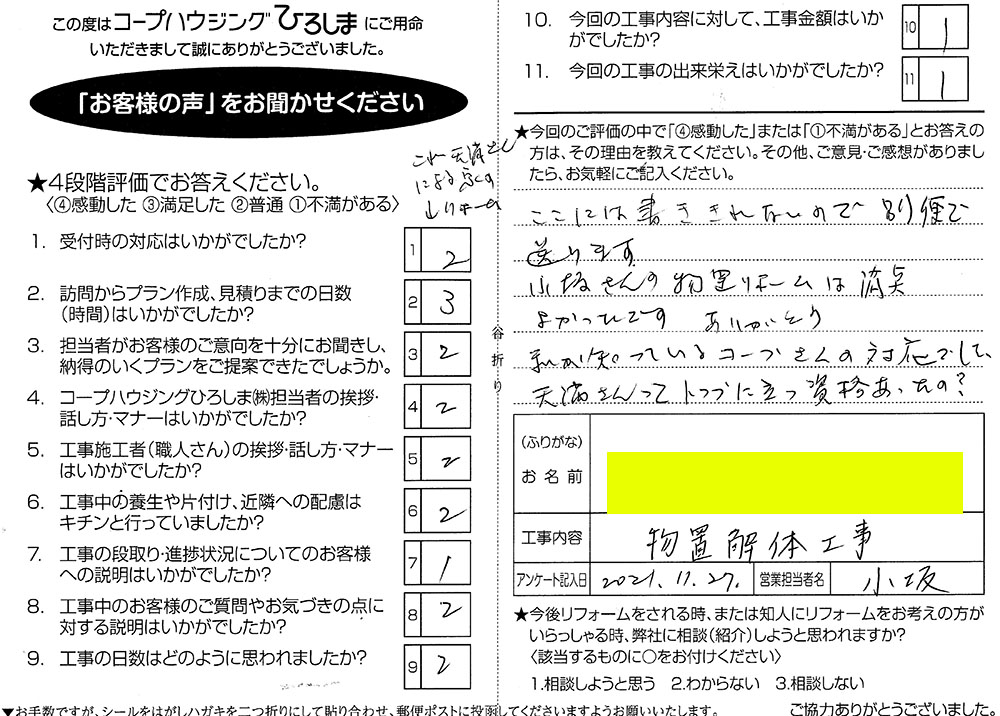 この度はコープハウジングひろしまにご用命
いただきまして誠にありがとうございました。
「お客様の声」をお聞かせください
これ 天満さん
による
↓リホーム
★4段階評価でお答えください。
〈④感動した ③満足した ②普通 ①不満がある〉
1. 受付時の対応はいかがでしたか?
1 2
2. 訪問からプラン作成、見積りまでの日数
(時間)はいかがでしたか?
2 3
3. 担当者がお客様のご意向を十分にお聞きし、
納得のいくプランをご提案できたでしょうか。
3 2
4. コープハウジングひろしま㈱担当者の挨拶・
話し方・マナーはいかがでしたか?
4 2
5. 工事施工者(職人さん)の挨拶・話し方・マナー
はいかがでしたか?
5 2
6. 工事中の養生や片付け、近隣への配慮は
キチンと行っていましたか?
6 2
7. 工事の段取り・進捗状況についてのお客様
への説明はいかがでしたか?
7 1
8. 工事中のお客様のご質問やお気づきの点に
対する説明はいかがでしたか?
8 2
9. 工事の日数はどのように思われましたか?
9 2
谷折り
10. 今回の工事内容に対して、工事金額はいか
がでしたか?
10 1
11. 今回の工事の出来栄えはいかがでしたか?
11 1
★今回のご評価の中で「④感動した」または「①不満がある」とお答えの
方は、その理由を教えてください。その他、ご意見・ご感想がありまし
たら、お気軽にご記入ください。
ここには書ききれないので 別便で
送ります
小坂さんの物置リホームは満点
よかったです ありがとう
私が知っているコープさんの対応でして、
天満さんって トップに立つ資格あったの?
(ふりがな)
お名前
工事内容 物置解体工事
アンケート記入日 2021.11.27. 営業担当者名 小坂
★今後リフォームをされる時、または知人にリフォームをお考えの方が
いらっしゃる時、弊社に相談(紹介)しようと思われますか?
〈該当するものに○をお付けください〉
1.相談しようと思う 2.わからない 3.相談しない
▼お手数ですが、シールをはがしハガキを二つ折りにして貼り合わせ、郵便ポストに投函してくださいますようお願いいたします。
ご協力ありがとうございました。